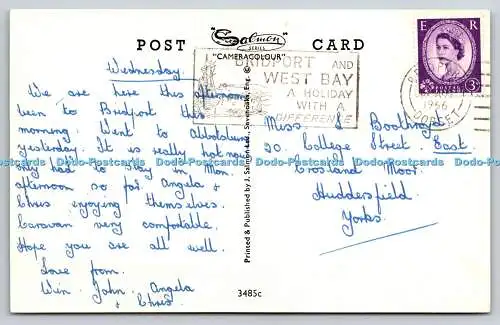 POST CARD
"Salmon SERIES
"CAMERACOLOUR"
BRIDPORT AND
WEST BAY
A HOLIDAY
WITH A
DIFFERENCE
E R
3D
1966
DORSET
Wednesday
We are here this afternoon
been to Bridport this
morning. Went to Abbotsbury
yesterday. It is really hot now
only had to stay in Mon.
afternoon so far. Angela &
Chris enjoying themselves.
Caravan very comfortable.
Hope you are all well.
Love from
Win, John, Angela
& Chris
Printed & Published by J. Salmon Ltd., Sevenoaks, Eng. ©
Miss Boothroyd
20, College Street East,
Crosland Moor
Huddersfield
Yorks.
3485c
Postcards www.delcampe.net